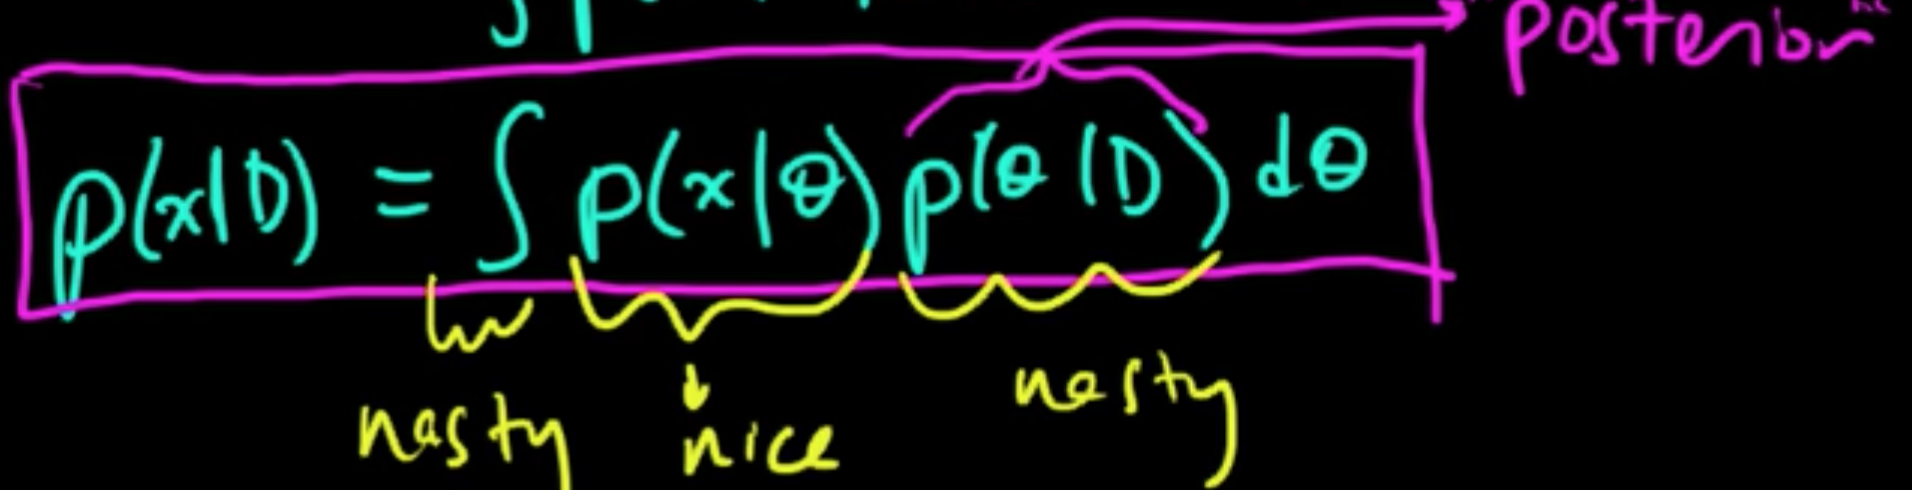 posterior
p(x|D) = ∫ p(x|θ) p(θ|D) dθ
nasty nice nasty